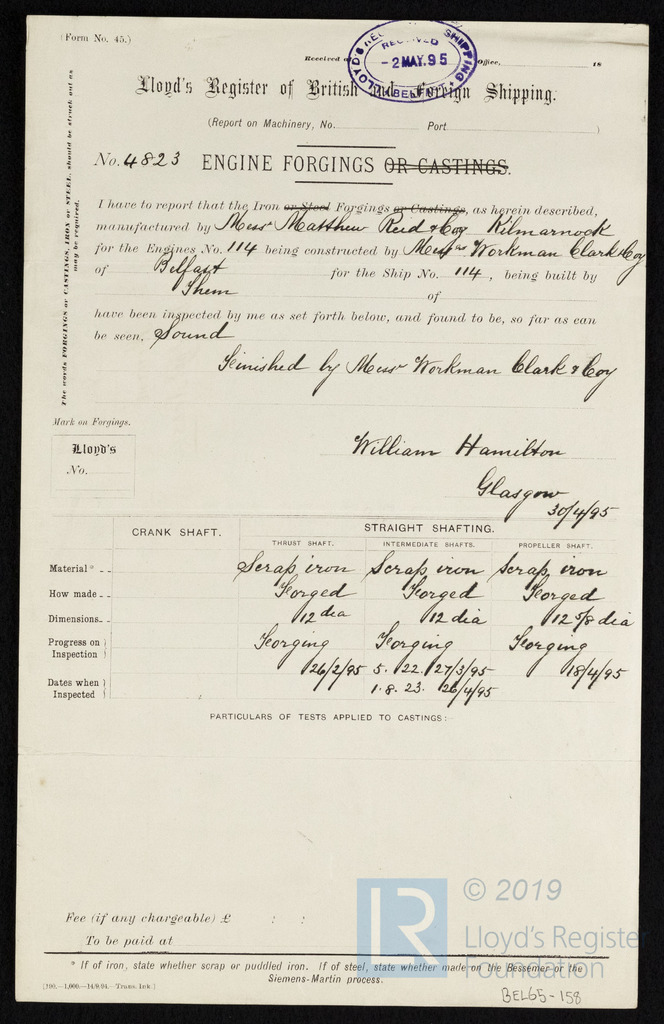 (Form No. 45.)
Received at Office, 18
LLOYD'S REG SHIPPING
RECEIVED
-2 MAY. 95
BELFAST
Lloyd's Register of British and Foreign Shipping.
(Report on Machinery, No. Port )
No. 4823 ENGINE FORGINGS OR CASTINGS.
The words FORGINGS or CASTINGS, IRON or STEEL, should be struck out as may be required.
I have to report that the Iron or Steel Forgings or Castings, as herein described,
manufactured by Messrs Matthew Reid & Coy Kilmarnock
for the Engines No. 114 being constructed by Messrs Workman Clark & Coy
of Belfast for the Ship No. 114, being built by
Them of
have been inspected by me as set forth below, and found to be, so far as can
be seen, Sound
Finished by Messrs Workman Clark & Coy
Mark on Forgings.
Lloyd's
No.
William Hamilton
Glasgow
30/4/95
CRANK SHAFT. STRAIGHT SHAFTING.
THRUST SHAFT. INTERMEDIATE SHAFTS. PROPELLER SHAFT.
Material* - - Scrap iron Scrap iron Scrap iron
How made - - Forged Forged Forged
Dimensions - - 12 dia 12 dia 12 5/8 dia
Progress on Inspection } Forging Forging Forging
Dates when Inspected } 26/2/95 5. 22. 27/3/95 18/4/95
1. 8. 23. 26/4/95
PARTICULARS OF TESTS APPLIED TO CASTINGS:—
Fee (if any chargeable) £ : :
To be paid at
* If of iron, state whether scrap or puddled iron. If of steel, state whether made on the Bessemer or the
Siemens-Martin process.
[190.—1,000.—14/9/94.—Trans. Ink.]
LR
© 2019
Lloyd's Register
Foundation
BEL65-158